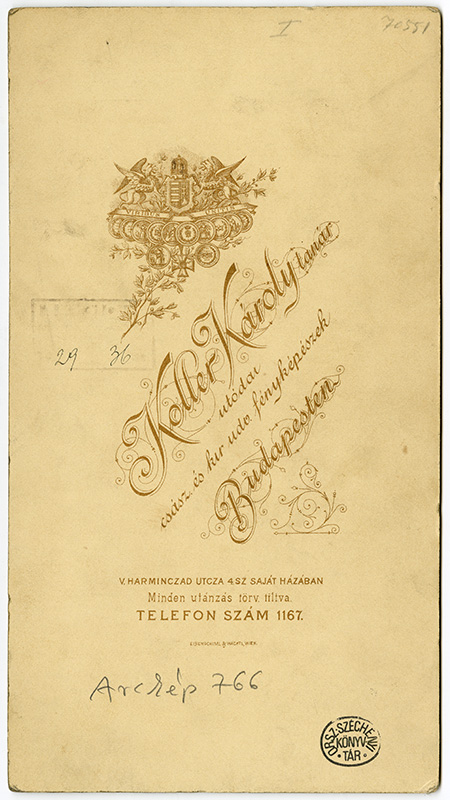 I
70551
VIRIBUS UNITIS
29 36
Koller Károly tanár
utódai
csász. és kir. udv. fényképészek
Budapesten.
V. HARMINCZAD UTCZA 4 SZ SAJÁT HÁZÁBAN
Minden utánzás törv. tiltva.
TELEFON SZÁM 1167.
Arckép 766
ORSZ. SZÉCHENYI
KÖNYV
TÁR